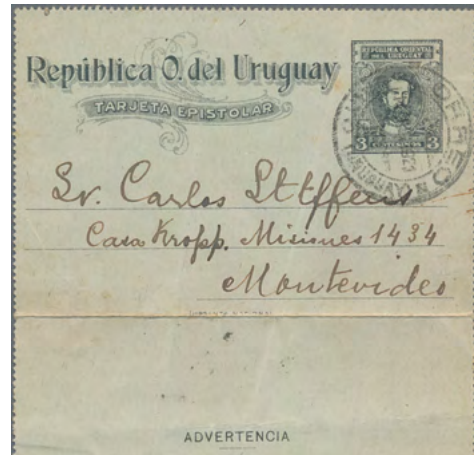 República O. del Uruguay
TARJETA EPISTOLAR
REPÚBLICA ORIENTAL
DEL URUGUAY
3 CENTESIMOS 3
CORREO
URUGUAY
Sr. Carlos Steffens
Casa Kropp. Misiones 1434
Montevideo
ADVERTENCIA